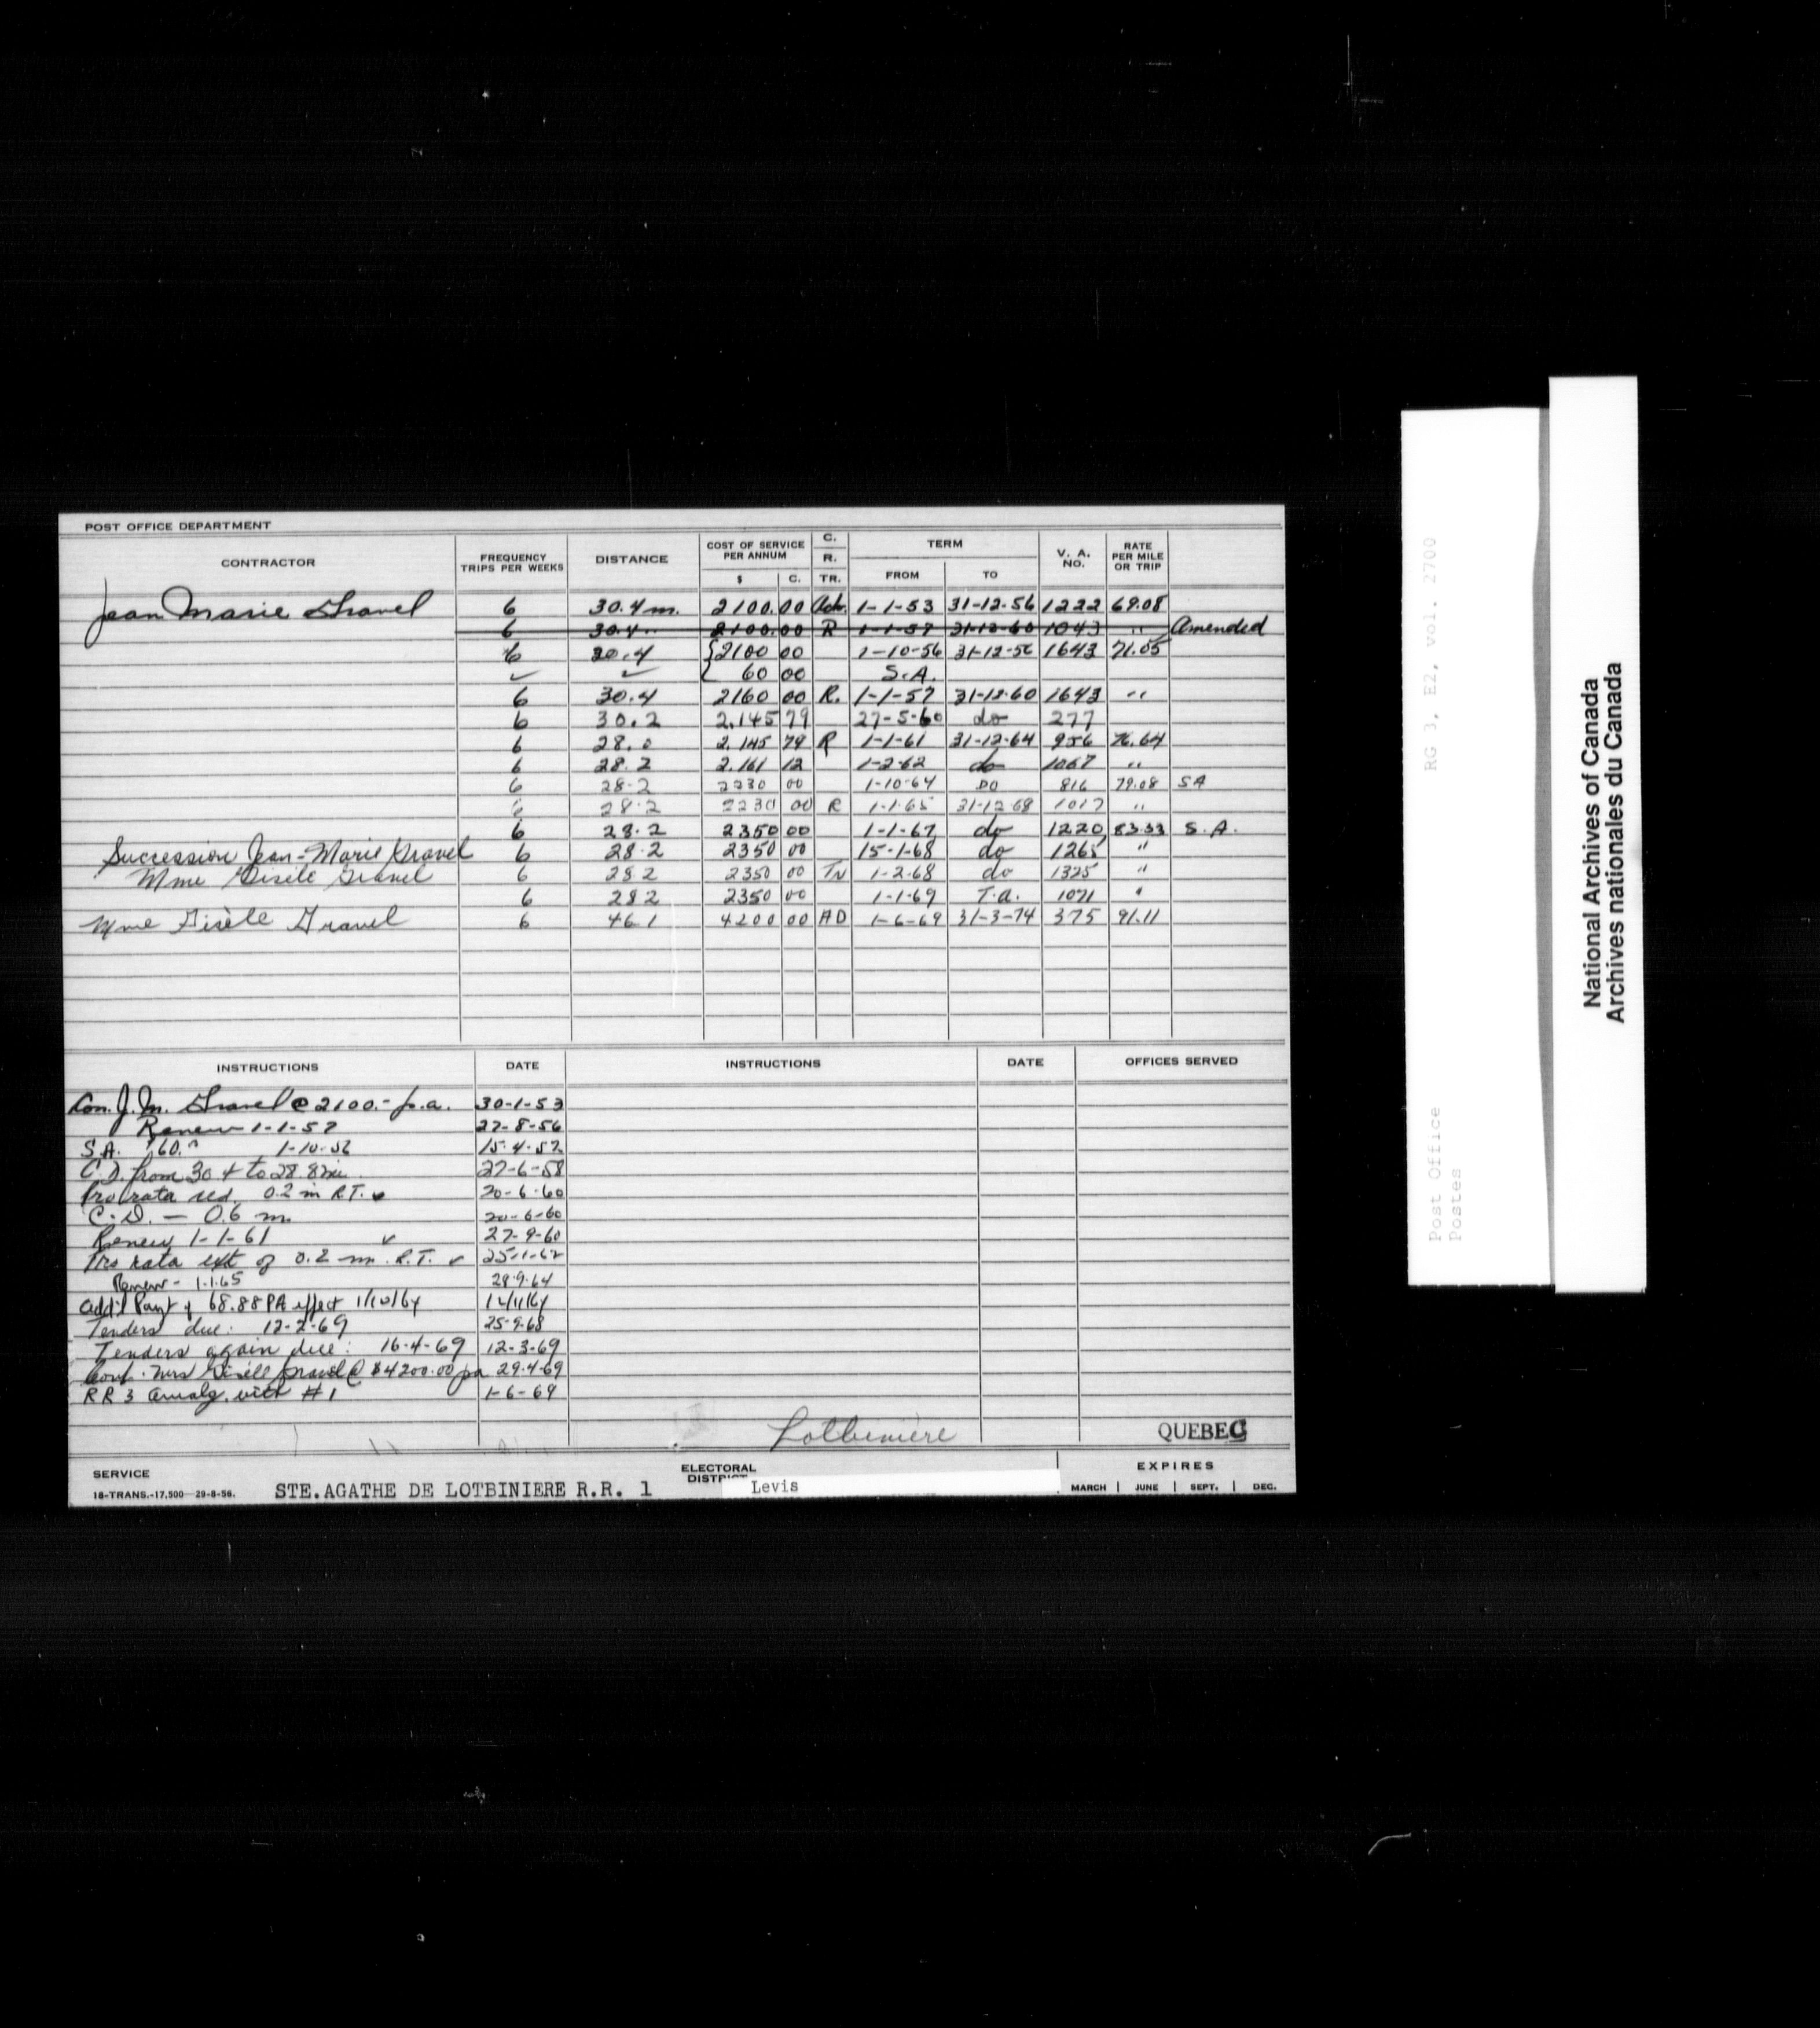 POST OFFICE DEPARTMENT
CONTRACTOR FREQUENCY TRIPS PER WEEKS DISTANCE COST OF SERVICE PER ANNUM $ C. C. R. TR. TERM FROM TO V. A. NO. RATE PER MILE OR TRIP
Jean Marie Gravel 6 30.4 m. 2100.00 Adv. 1-1-53 31-12-56 1222 69.08
6 30.4 " 2100.00 R 1-1-57 31-12-60 1043 " Amended
6 30.4 {2100 00 1-10-56 31-12-56 1643 71.05
✓ ✓ { 60 00 S.A.
6 30.4 2160 00 R. 1-1-57 31-12-60 1643 "
6 30.2 2,145 79 27-5-60 do 277
6 28.0 2,145 79 R 1-1-61 31-12-64 956 76.64
6 28.2 2,161 12 1-2-62 do 1067 "
6 28.2 2230 00 1-10-64 DO 816 79.08 SA
6 28.2 2230 00 R 1-1-65 31-12-68 1017 "
6 28.2 2350 00 1-1-67 do 1220 83.33 S.A.
Succession Jean-Marie Gravel 6 28.2 2350 00 15-1-68 do 1265 "
Mme Gisèle Gravel 6 28.2 2350 00 TN 1-2-68 do 1325 "
6 28.2 2350 00 1-1-69 T.a. 1071 "
Mme Gisèle Gravel 6 46.1 4200 00 AD 1-6-69 31-3-74 375 91.11
INSTRUCTIONS DATE INSTRUCTIONS DATE OFFICES SERVED
Con. J. M. Gravel @ 2100.- p.a. 30-1-53
Renew 1-1-57 27-8-56
S.A. $60.00 1-10-56 15-4-57
C.D. from 30.4 to 28.8 mi. 27-6-58
Pro rata red. 0.2 m R.T. ✓ 20-6-60
C.D. — 0.6 m. 20-6-60
Renew 1-1-61 ✓ 27-9-60
Pro rata ext of 0.2 m. R.T. ✓ 25-1-62
Renew - 1.1.65 28.9.64
Add'l Paymt of 68.88 PA effect 1/10/64 12/11/64
Tenders due: 12-2-69 25-9-68
Tenders again due: 16-4-69 12-3-69
Conf. Mrs Gisèle Gravel @ $4200.00 pa 29-4-69
RR 3 amalg. with #1 1-6-69
Lotbinière QUEBEC
SERVICE STE.AGATHE DE LOTBINIERE R.R. 1 ELECTORAL DISTRICT Levis EXPIRES
18-TRANS.-17,500—29-8-56. MARCH | JUNE | SEPT. | DEC.
RG 3, E2, vol. 2700
Post Office
Postes
National Archives of Canada
Archives nationales du Canada